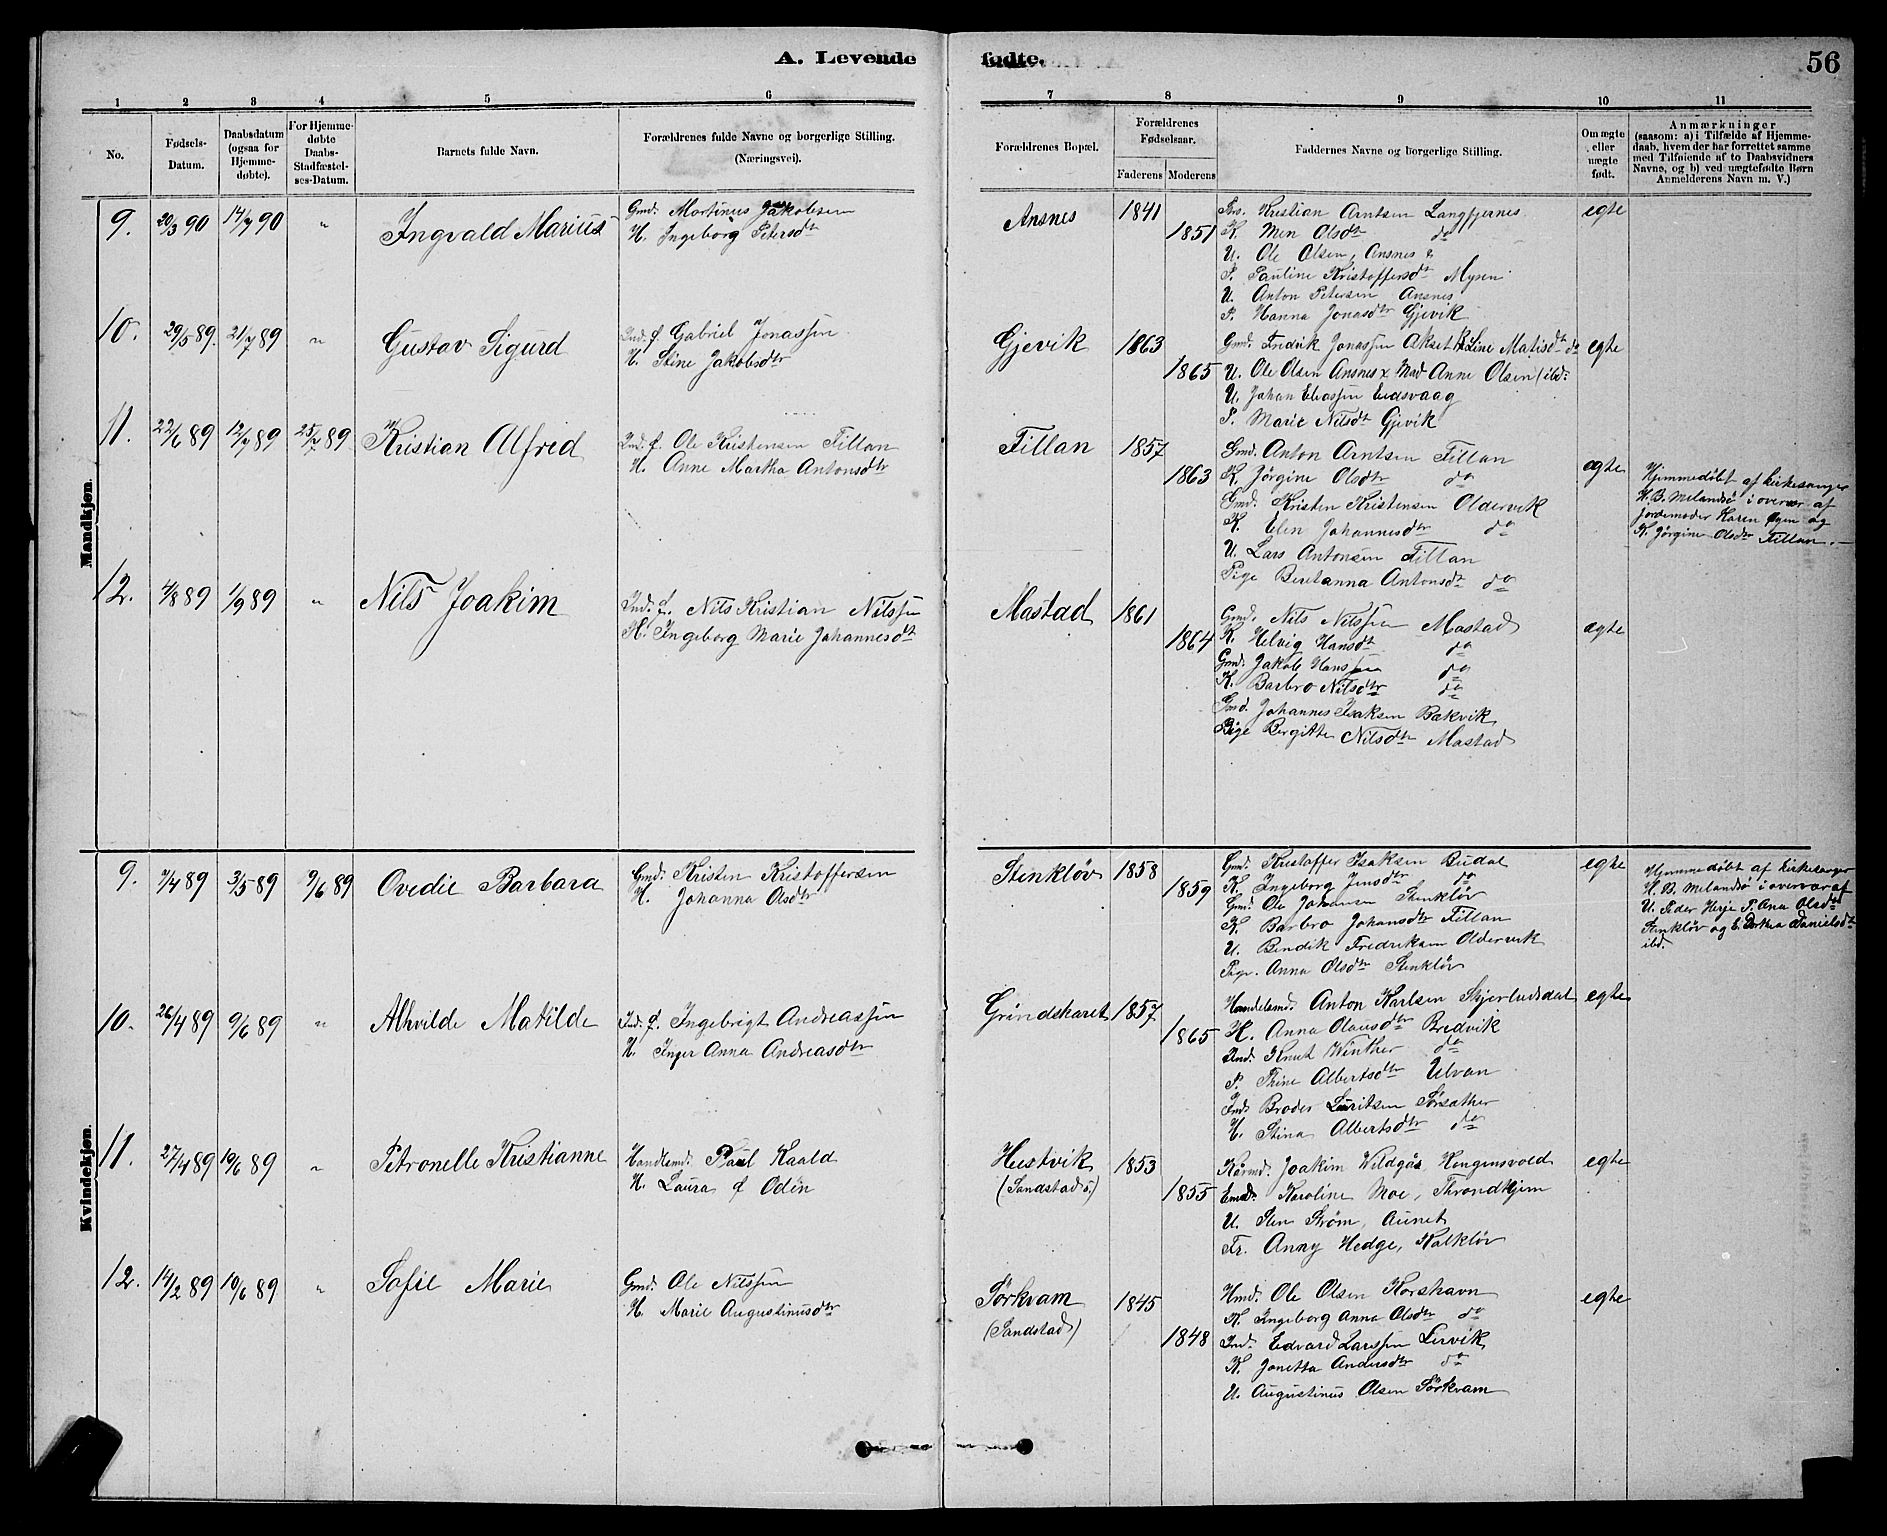 A. Levende fødte.
56
1 2 3 4 5 6 7 8 9 10 11
No.
Fødsels-
Datum.
Daabsdatum
(ogsaa for
Hjemme-
døbte).
For Hjemme-
døbte
Daabs-
Stadfæstel-
ses-Datum.
Barnets fulde Navn.
Forældrenes fulde Navne og borgerlige Stilling.
(Næringsvei).
Forældrenes Bopæl.
Forældrenes
Fødselsaar.
Faderens Moderens
Faddernes Navne og borgerlige Stilling.
Om ægte
eller
uægte
født.
Anmærkninger
(saasom: a) i Tilfælde af Hjemme-
daab, hvem der har forrettet samme
med Tilføiende af to Daabsvidners
Navne, og b) ved uægtefødte Børn
Anmelderens Navn m. V.)
Mandkjøn.
9. 20/3 90 14/7 90 " Ingvald Marius
Gmd. Martinus Jakobsen
H. Ingeborg Petersdtr
Ansnes 1841
1851
Kristian Arntsen Langfjernes
K. Olsdtr do
U. Ole Olsen, Ansnes &
P. Pauline Kristoffersdtr Mysen
U. Anton Petersen Ansnes
P. Hanna Jonasdtr Gjevik
egte
10. 29/5 89. 21/7 89 " Gustav Sigurd
Ind. f. Gabriel Jonassen
H. Stine Jakobsdtr
Gjevik 1863
1865
Gmd. Fredrik Jonassen Akset Line Matisdtr do
U. Ole Olsen Ansnes & Mad Anne Olsen ibd:
U. Johan Eliassen Eidsvaag
P. Marie Nilsdtr Gjevik
egte
11. 22/6 89 12/7 89 25/7 89 Kristian Alfred
Ind. f. Ole Kristensen Fillan
H. Anne Martha Antonsdtr
Fillan 1857
1863
Gmd. Anton Arntsen Fillan
K. Jørgine Olsdtr do
Gmd. Kristen Kristensen Oldervik
K. Elen Johannesdtr do
U. Lars Antonsen Fillan
Pige Beretanna Antonsdtr do
ægte
Hjemmedøbt af kirkesanger
H. B. Melandsø i overvær af
Jordemoder Karen Øyen og
K. Jørgine Olsdtr Fillan.
12. 4/8 89 1/9 89 " Nils Joakim
Ind. f. Nils Kristian Nilssen
H. Ingeborg Marie Johannesdtr
Mastad 1861
1864
Gmd. Nils Nilssen Mastad
K. Helvig Hansdtr do
Gmd. Jakob Hanssen do
K. Barbro Nilsdtr do
Gmd. Johannes Isaksen Bækvik
Pige Bergitte Nilsdtr Mastad
ægte
Kvindekjøn.
9. 7/4 89 3/5 89 9/6 89 Ovedie Barbara
Gmd. Kristen Kristoffersen
H. Johanna Olsdtr
Stenkløv 1858
1859
Gmd. Kristoffer Isaksen Budal
K. Ingeborg Jensdtr do
Gmd. Ole Johansen Stenkløv
K. Barbro Johansdtr Fillan
U. Bendik Fredriksen Oldervik
Pige. Anna Olsdtr Stenkløv
egte
Hjemmedøbt af kirkesanger
H. B. Melandsø i overvær af
U. Peder Herje P. Ana Olsdtr
Stenkløv og E. Dorthea Danielsdtr
ibd.
10. 26/4 89 9/6 89 " Alhvilde Matilde
Ind. f. Ingebrigt Andreassen
H. Inger Anna Andreasdtr
Grindskaret 1857
1865
Handelsmd. Anton Karlsen Skjerludsdal
H. Anna Olausdtr Bredvik
Ind. Knut Winther do
P. Thine Albertsdtr Ulvan
Ind. Broder Lauritsen Sørsæther
H. Stina Albertsdtr do
egte
11. 27/4 89 10/6 89 " Petronelle Kristianne
Handlsmd. Paul Kaald
H. Laura f. Odén
Hestvik
(Sandstad s.)
1853
1855
Kårmd. Joakim Wildgås Hongensvold
Karoline Moe, Throndhjem
U. Sten Strøm, Aunet
Fr. Anny Hedge, Kalkløv
egte
12. 14/2 89 10/6 89 " Sofie Marie
Gmd. Ole Nilssen
H. Marie Augustinusdtr
Sørkvam
(Sandstad)
1845
1848
Hmd. Ole Olsen Korshavn
K. Ingeborg Anna Olsdtr do
Ind. Edvard Larssen Lervik
K. Jonetta Andersdtr do
U. Augustinus Olsen Sørkvam
egte